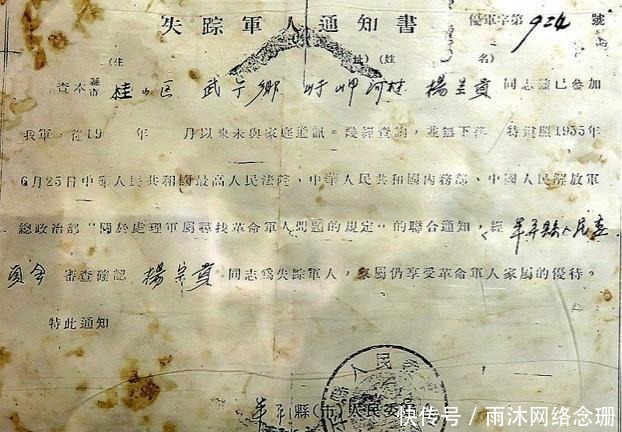 失踪軍人通知書
優軍字第924號
(住址)(姓名)
查本縣市桂山区武宁鄉 岬河村 楊崇貴 同志確已參加
我軍,從19 年 月以來未與家庭通訊。幾經查詢,並無下落 特遵照1955年
6月25日中華人民共和國最高人民法院、中華人民共和國內務部、中國人民解放軍
總政治部“關於處理軍屬尋找革命軍人問題的規定”的聯合通知,經 縣人民委
員會 審查確認 楊崇貴 同志為失踪軍人,家屬仍享受革命軍人家屬的優待。
特此通知
縣(市)人民委
人民委
快传号 / 雨沐网络念珊